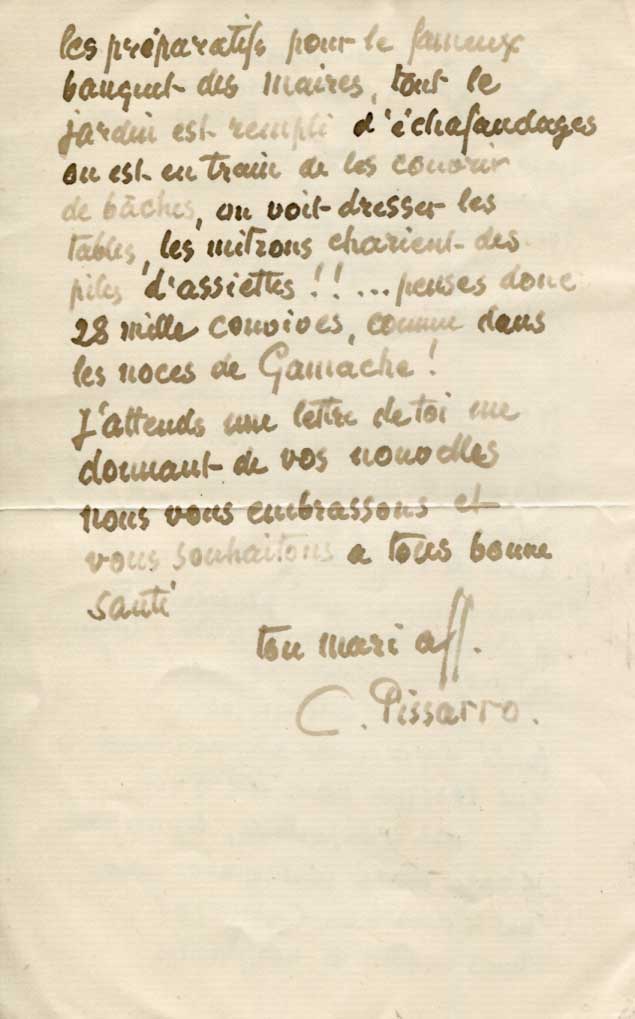 les préparatifs pour le fameux
banquet des Maires, tout le
jardin est rempli d'échafaudages
on est en train de les couvrir
de bâches, on voit dresser les
tables, les mitrons charient des
piles d'assiettes !! ... penses donc
28 mille convives, comme dans
les noces de Gamache !
J'attends une lettre de toi me
donnant de vos nouvelles
nous vous embrassons et
vous souhaitons a tous bonne
santé
ton mari aff.
C. Pissarro.